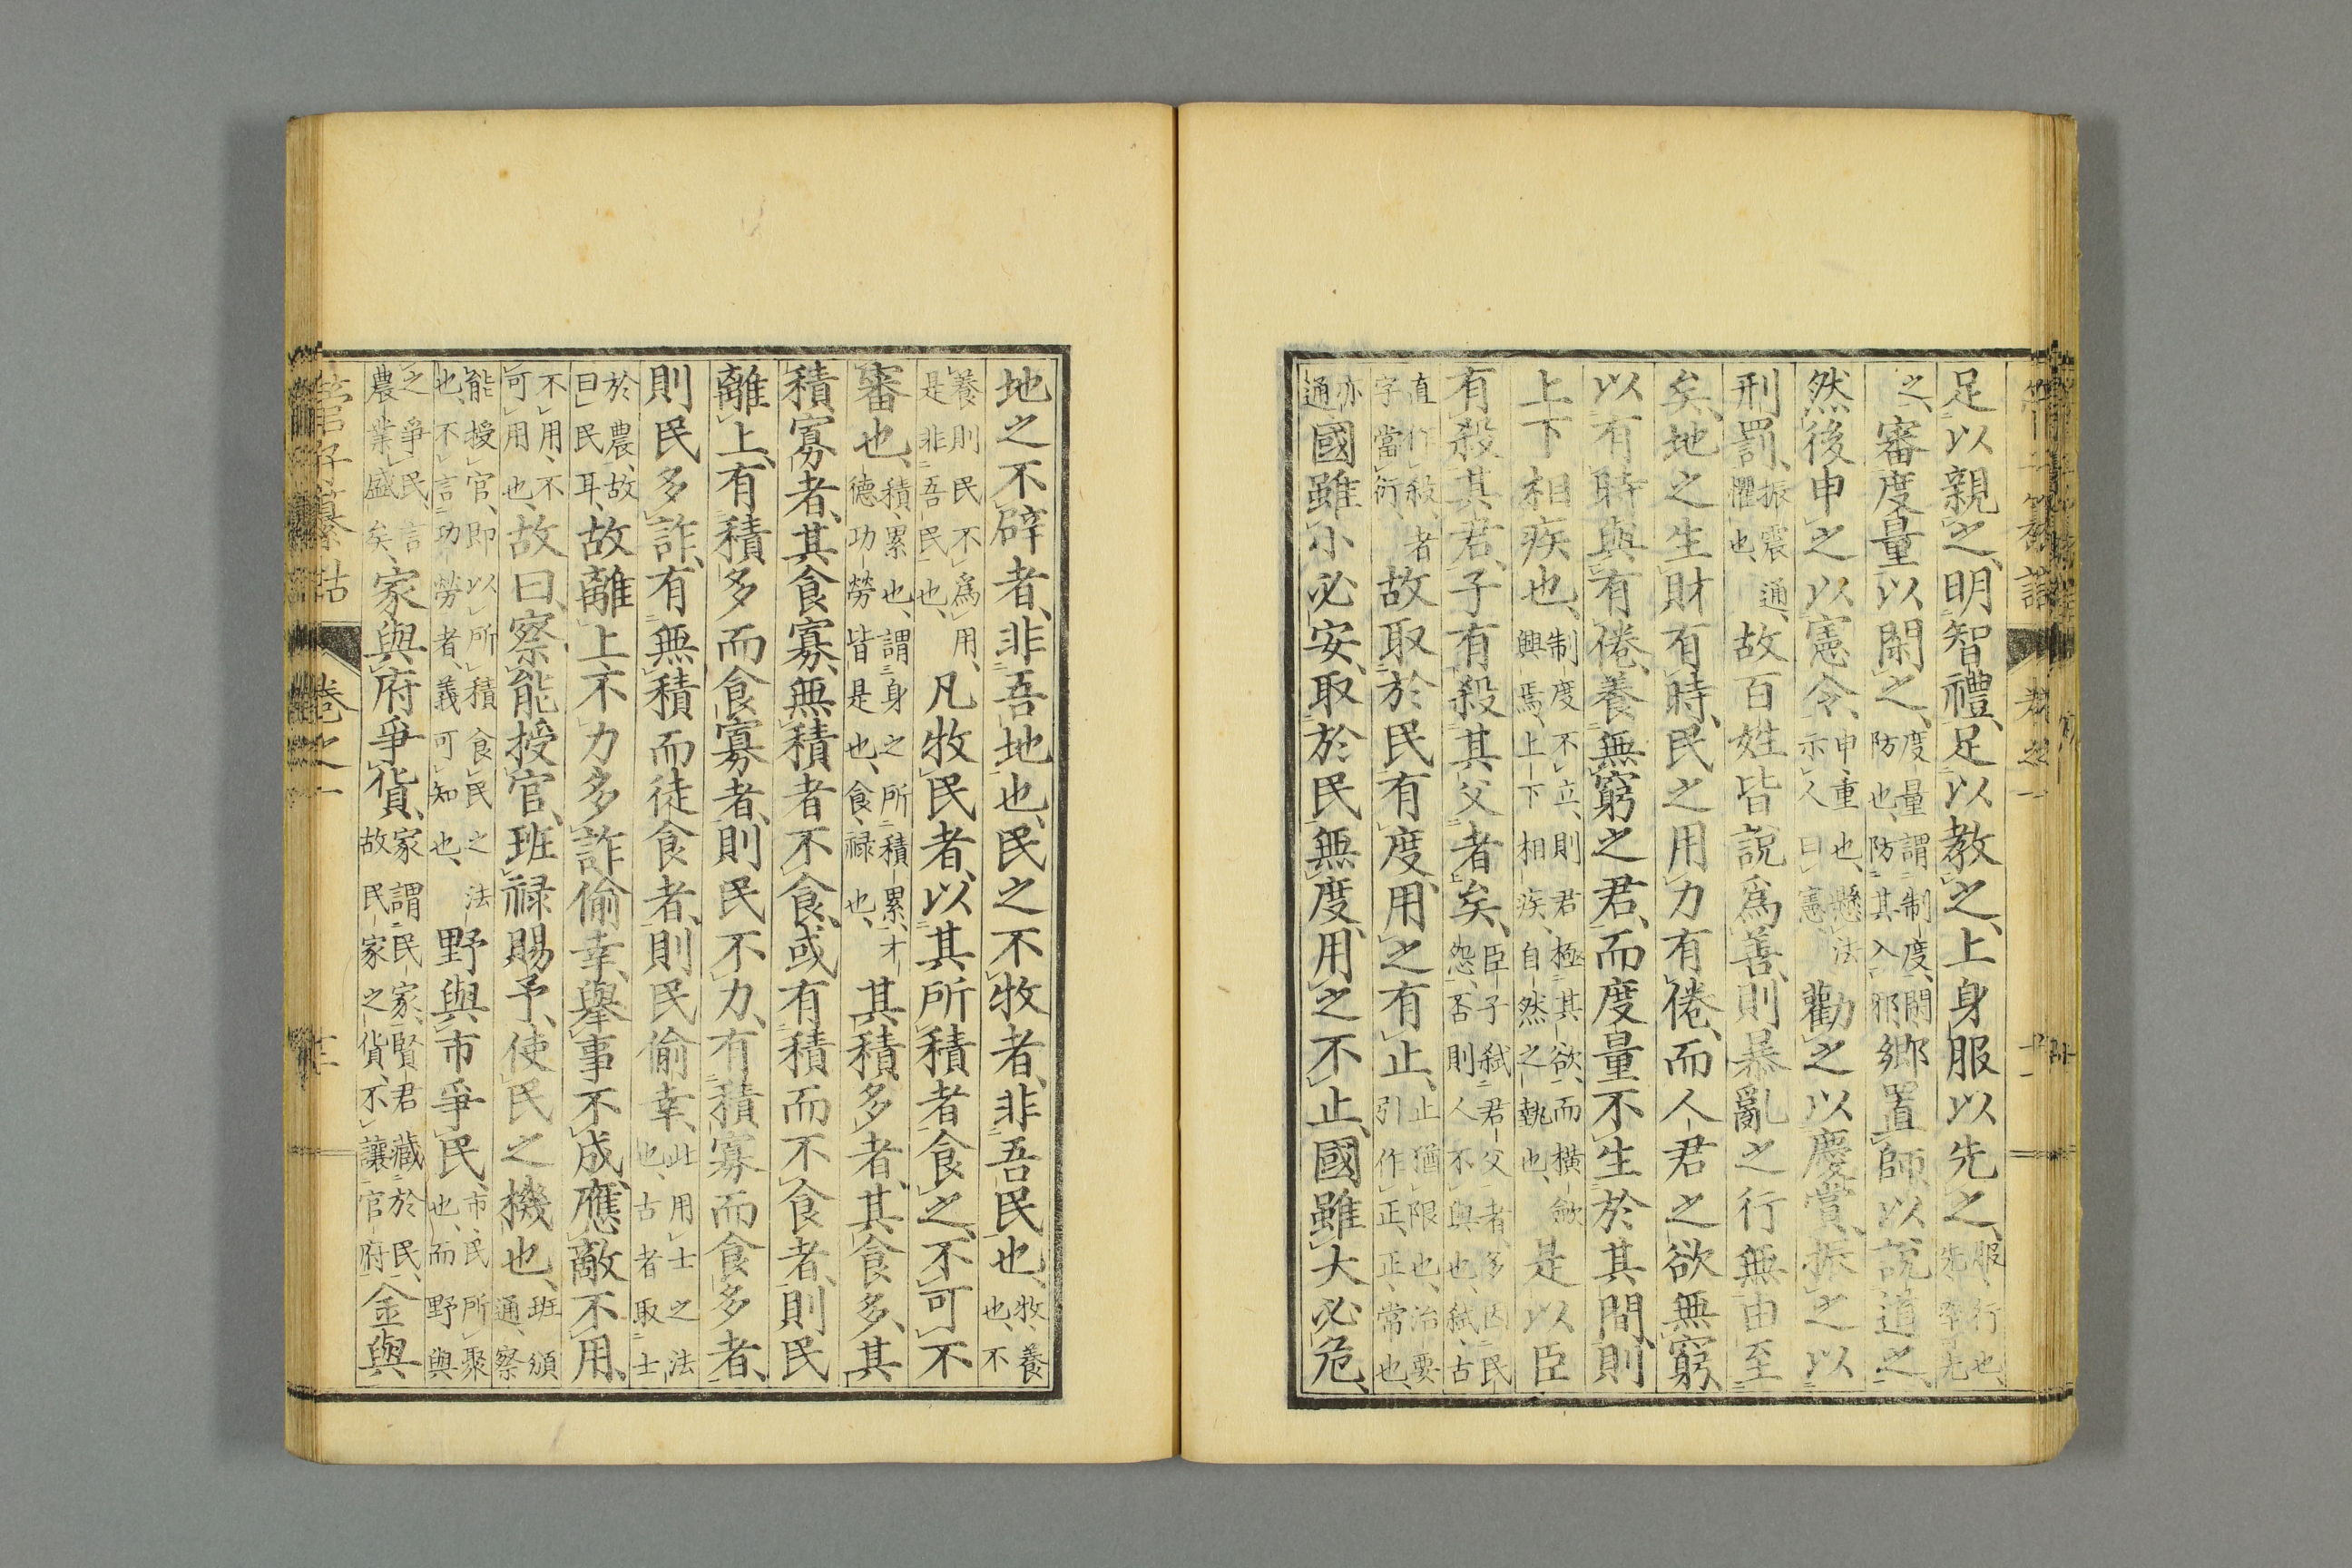 足以親之、明智禮、足以教之、上身服以先之、服行也、先率先
之、審度量以閑之、度量謂制度、閑防也、防其入邪鄉置師、以說道之、
然後申之以憲令、申重也、懸法示人曰憲勸之以慶賞、振之以
刑罰、振震通、懼也、故百姓皆說爲善、則暴亂之行無由至
矣、地之生財有時、民之用力有倦、而人君之欲無窮、
以有時與有倦、養無窮之君、而度量不生於其間、則
上下相疾也、制度不立、則君極其欲、而橫斂興焉、上下相疾、自然之執也、是以臣
有殺其君、子有殺其父者矣、臣子弒君父者、多因民怨、否則人不與也、弒、古
直作殺、者字當衍故取於民有度、用之有止、止猶限也、治要引作正、正、常也、
亦通國雖小必安、取於民無度、用之不止、國雖大必危、
地之不辟者、非吾地也、民之不牧者、非吾民也、牧、養也、不
養則民不爲用、是非吾民也、凡牧民者、以其所積者食之、不可不
審也、積、累也、謂身之所積累、才德功勞皆是也、食、禄也、其積多者、其食多、其
積寡者、其食寡、無積者不食、或有積而不食者、則民
離上、有積多而食寡者、則民不力、有積寡而食多者、
則民多詐、有無積而徒食者、則民偷幸、此用士之法也、古者取士
於農、故曰民耳、故離上不力多詐偷幸、舉事不成、應敵不用、
不用、不可用也、故曰、察能授官、班禄賜予、使民之機也、班頒通、察
能授官、即以所積食民之法也、不言功勞者、義可知也、野與市爭民、市、民所聚也、而野與
之爭民、言農業盛矣、家與府爭貨、家謂民家、賢君藏於民、故民家之貨、不讓官府金與
管子纂詁 卷之一